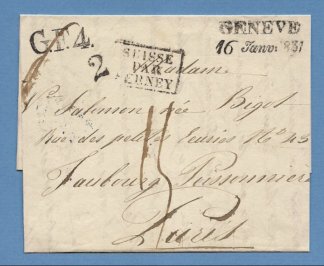 G.F.4.
GENEVE
16 Janv. 1831
2
SUISSE
PAR
FERNEY
Madame
Salomon née Bigot
Rue des petites Ecuries N° 43
Faubourg Poissonnier
15
Paris